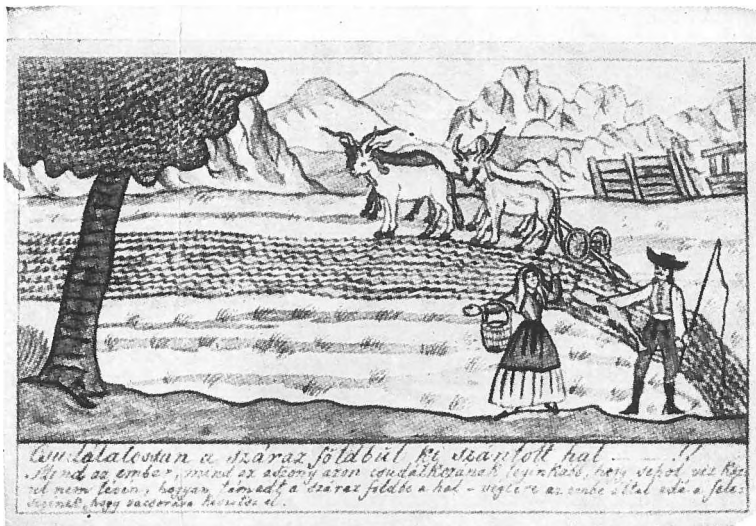 Csudálatossan a száraz földbül ki szántott hal — — — !!
Mind az ember, mind az aszony azon csudálkozának leginkább, hogy sehol víz köz
el nem lévén, hogyan támadt a száraz földbe a hal – végtére az ember által adá a fele
ségének, hogy vacsorára